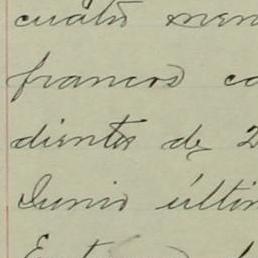 cuatro men
francos co
dientes de 2
Junio últim